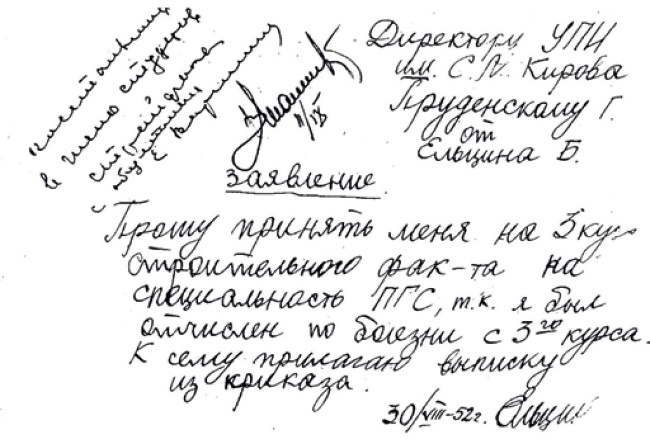 Директору УПИ
им. С.М. Кирова
Пруденскому Г.
от
Ельцина Б.
заявление.
Прошу принять меня на 3 кур
строительного фак-та на
специальность ПГС, т.к. я был
отчислен по боезни с 3го курса.
К сему прилагаю выписку
из приказа.
30/VIII-52г. Ельцин
в число студентов